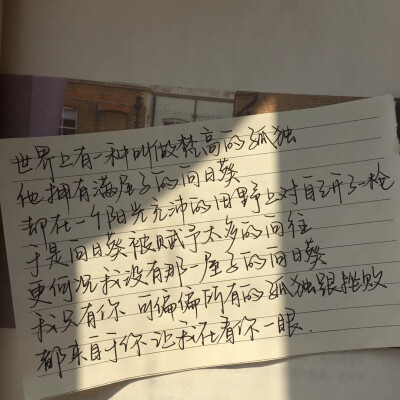 世界上有一种叫做梵高的孤独
他拥有满屋子的向日葵
却在一个阳光充沛的旧野上对自己开了一枪
于是向日葵被赋予太多的向往
更何况我没有那一屋子的向日葵
我只有你 可偏偏所有的孤独跟挫败
都来自于你 让我在看你一眼.